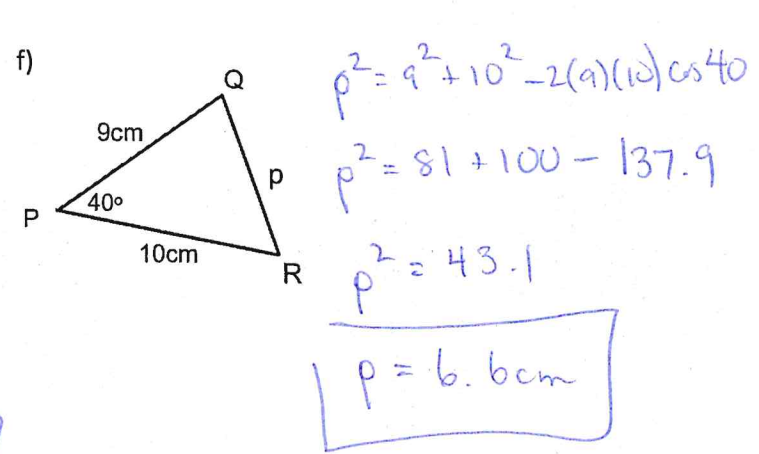 f)
Q
9cm
p
P
40°
10cm
R
p² = 9² + 10² - 2(9)(10) cos 40
p² = 81 + 100 - 137.9
p² = 43.1
p = 6.6cm